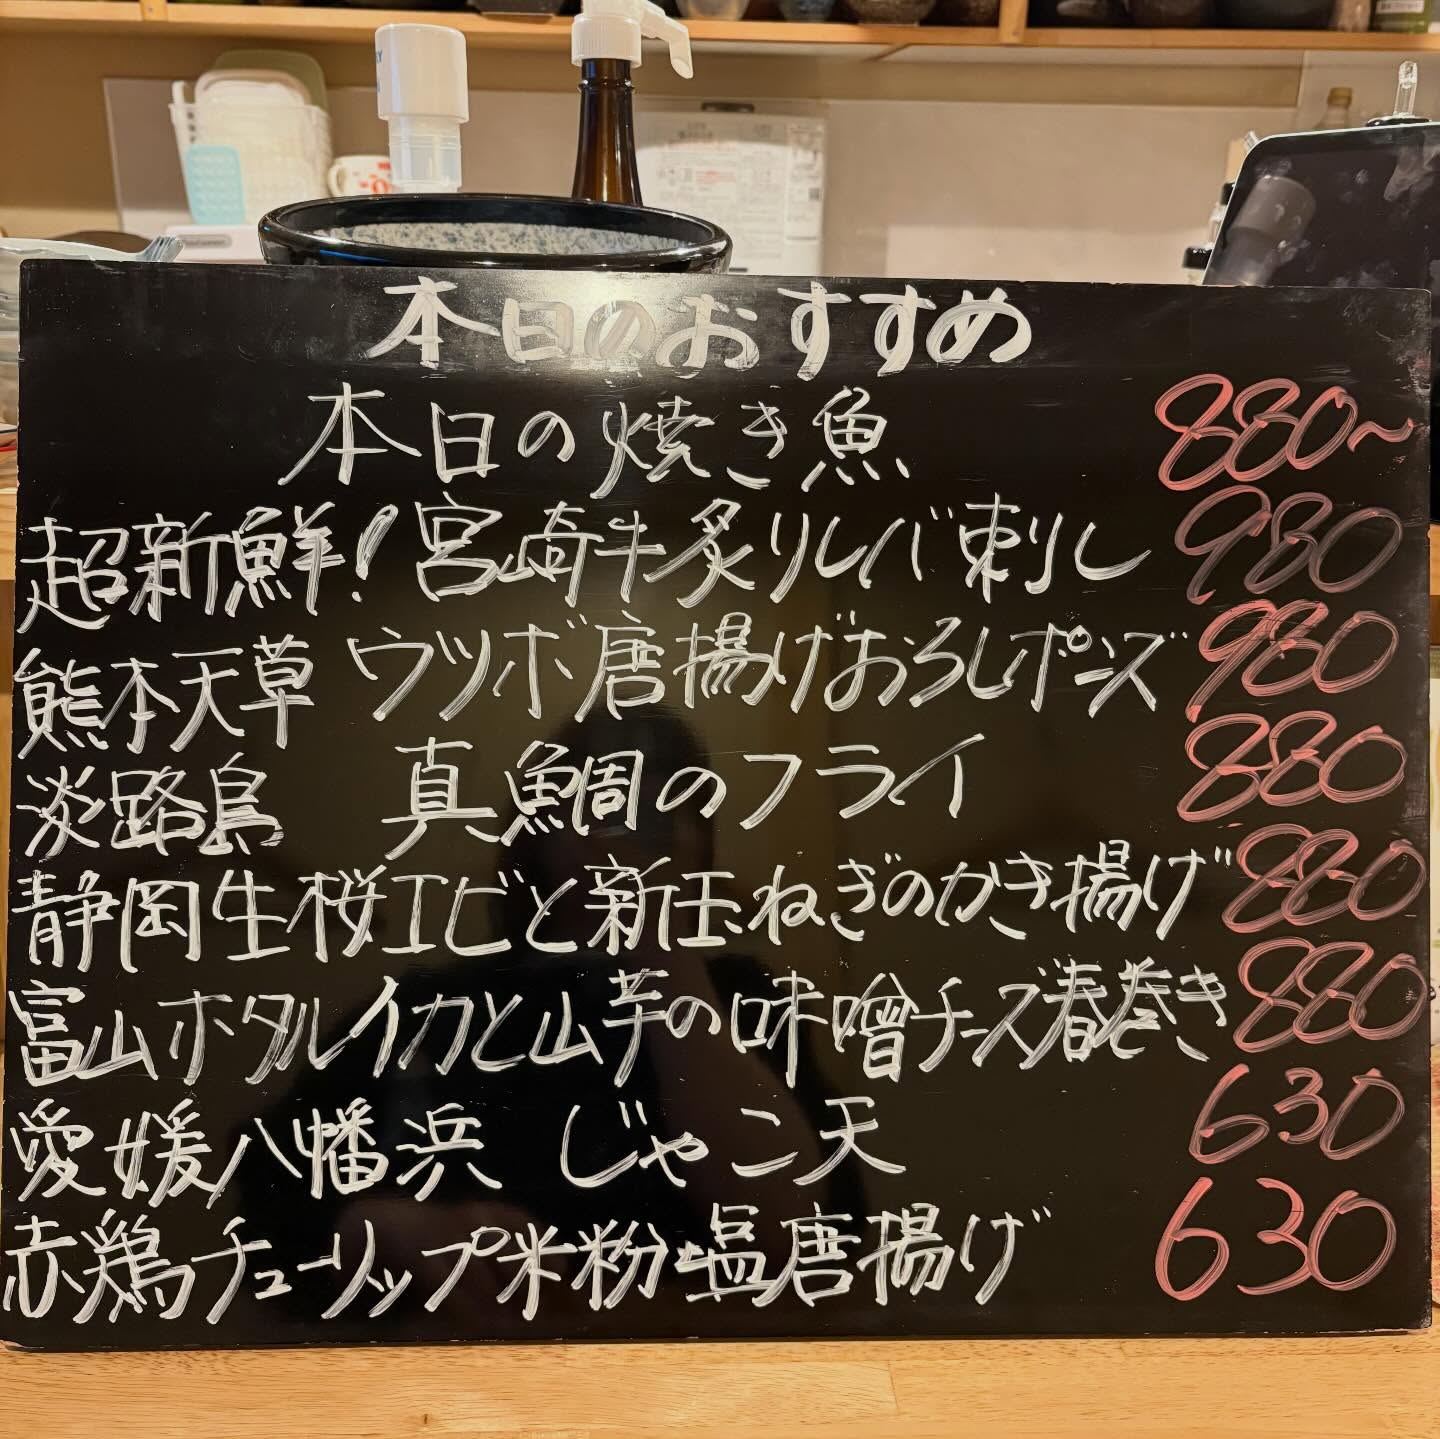 本日のおすすめ
本日の焼き魚 880~
超新鮮!宮崎牛炙りレバ刺し 980
熊本天草 ウツボ唐揚げおろしポンズ 980
淡路島 真鯛のフライ 880
静岡生桜エビと新玉ねぎのかき揚げ 880
富山ホタルイカと山芋の味噌チーズ春巻き 880
愛媛八幡浜 じゃこ天 630
赤鶏チューリップ米粉塩唐揚げ 630